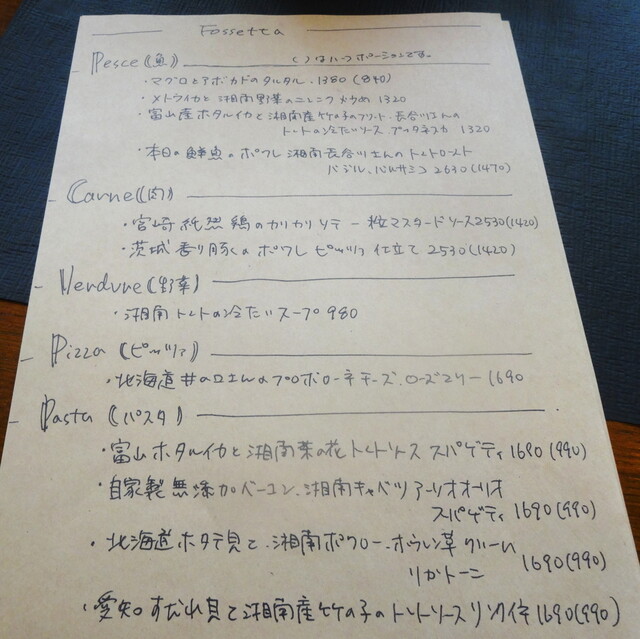 Fossetta
Pesce (魚) ( )はハーフポーションです。
・マグロとアボカドのタルタル . 1380 (840)
・ヤリイカと湘南野菜のニンニク炒め 1320
・富山産ホタルイカと湘南産竹の子のフリット . 長谷川さんの
トマトの冷たいソース プッタネスカ 1320
・本日の鮮魚のポワレ 湘南長谷川さんのトマトロースト
バジル、バルサミコ 2630 (1470)
Carne (肉)
・宮崎純然鶏のカリカリソテー 粒マスタードソース 2530 (1420)
・茨城香り豚のポワレ ピッツァ仕立て 2530 (1420)
Verdure (野菜)
・湘南トマトの冷たいスープ 980
Pizza (ピッツァ)
・北海道井の口さんのプロボローネチーズ、ローズマリー 1690
Pasta (パスタ)
・富山ホタルイカと湘南菜の花トマトソース スパゲティ 1690 (990)
・自家製無添加ベーコン、湘南キャベツ アーリオオーリオ
スパゲティ 1690 (990)
・北海道ホタテ貝と、湘南ポワロー、ホウレン草クリーム
リガトーニ 1690 (990)
・愛知すだれ貝と湘南産竹の子のトマトソース リングイネ 1690 (990)